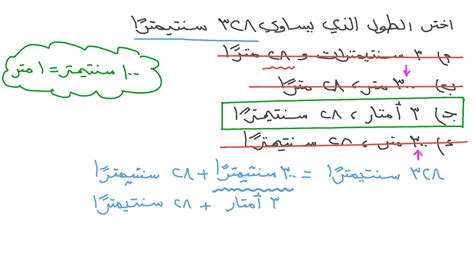 اختر الطول الذي يساوي ٣٢٨ سنتيمترًا
أ) ٣ سنتيمترات و ٢٨ مترًا
ب) ٣٠٠ متر، ٢٨ سنتيمترًا
ج) ٣ أمتار، ٢٨ سنتيمترًا
د) ٣٠٠ متر، ٢٨ سنتيمترًا
١٠٠ سنتيمتر = ١ متر
٣٢٨ سنتيمترًا = ٣٠٠ سنتيمترًا + ٢٨ سنتيمترًا
٣ أمتار + ٢٨ سنتيمترًا